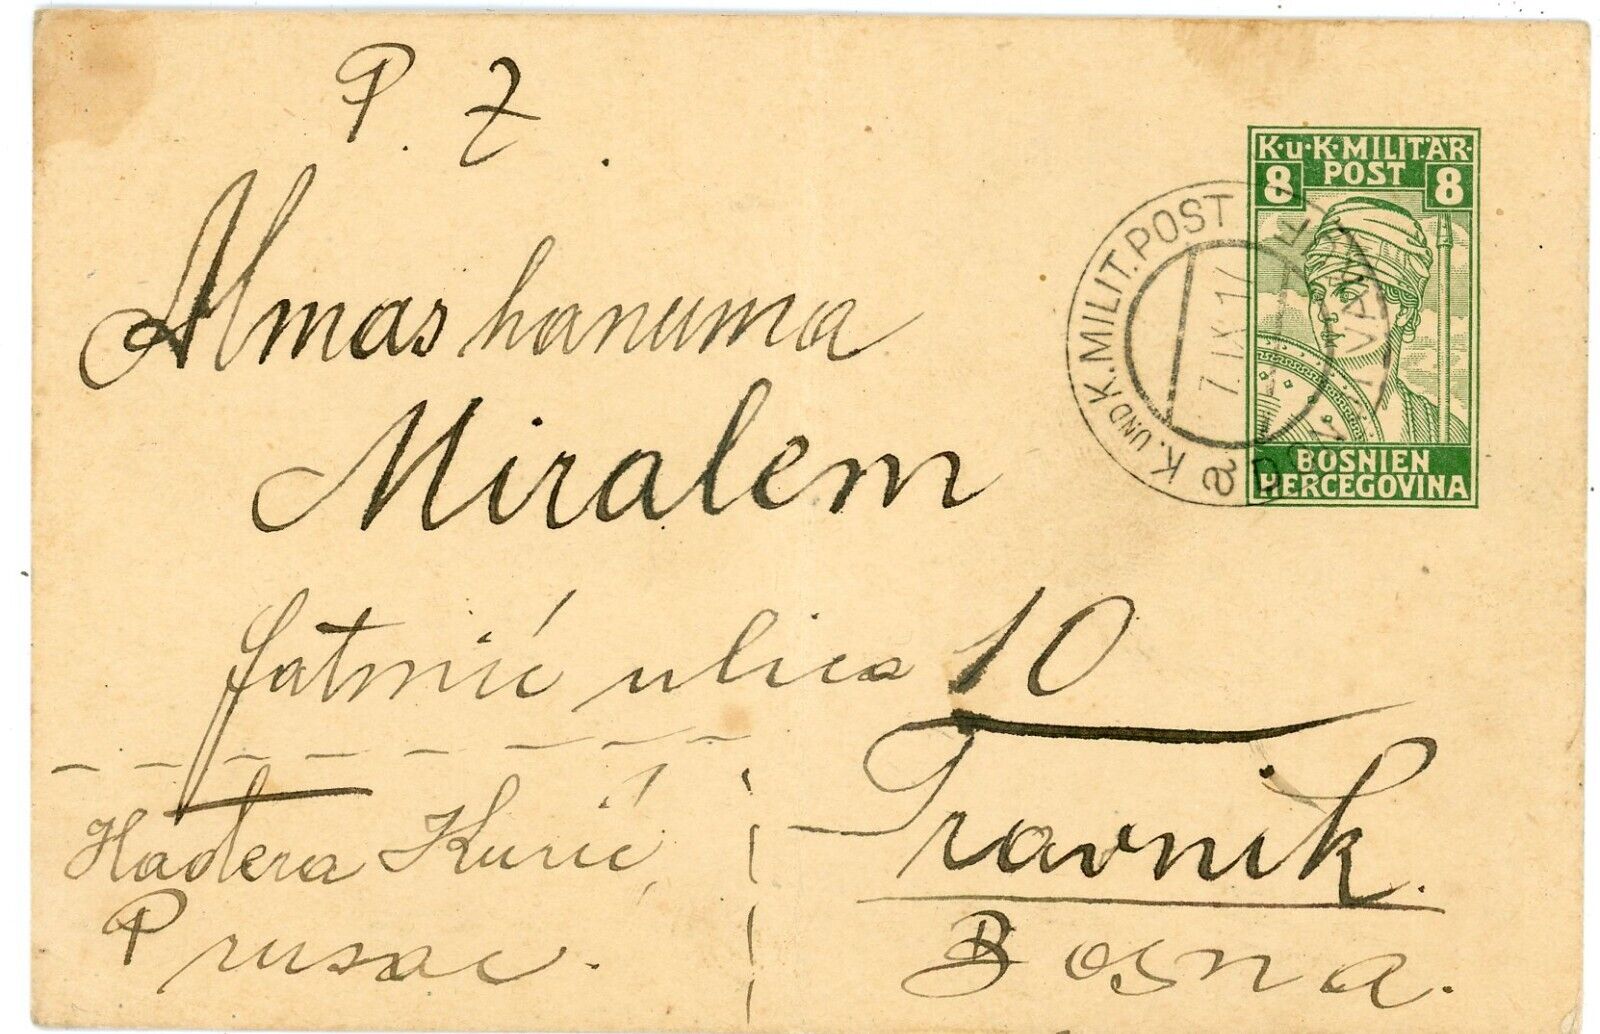 P. Z.
K·u·K·MILITÄR·
POST
8 8
K. UND K. MILIT. POST
7. IX. 1
BOSNIEN
HERCEGOVINA
Almas hanuma
Miralem
fatmić ulica 10
Hadera Kurić,
Prusac.
Travnik.
Bosna.